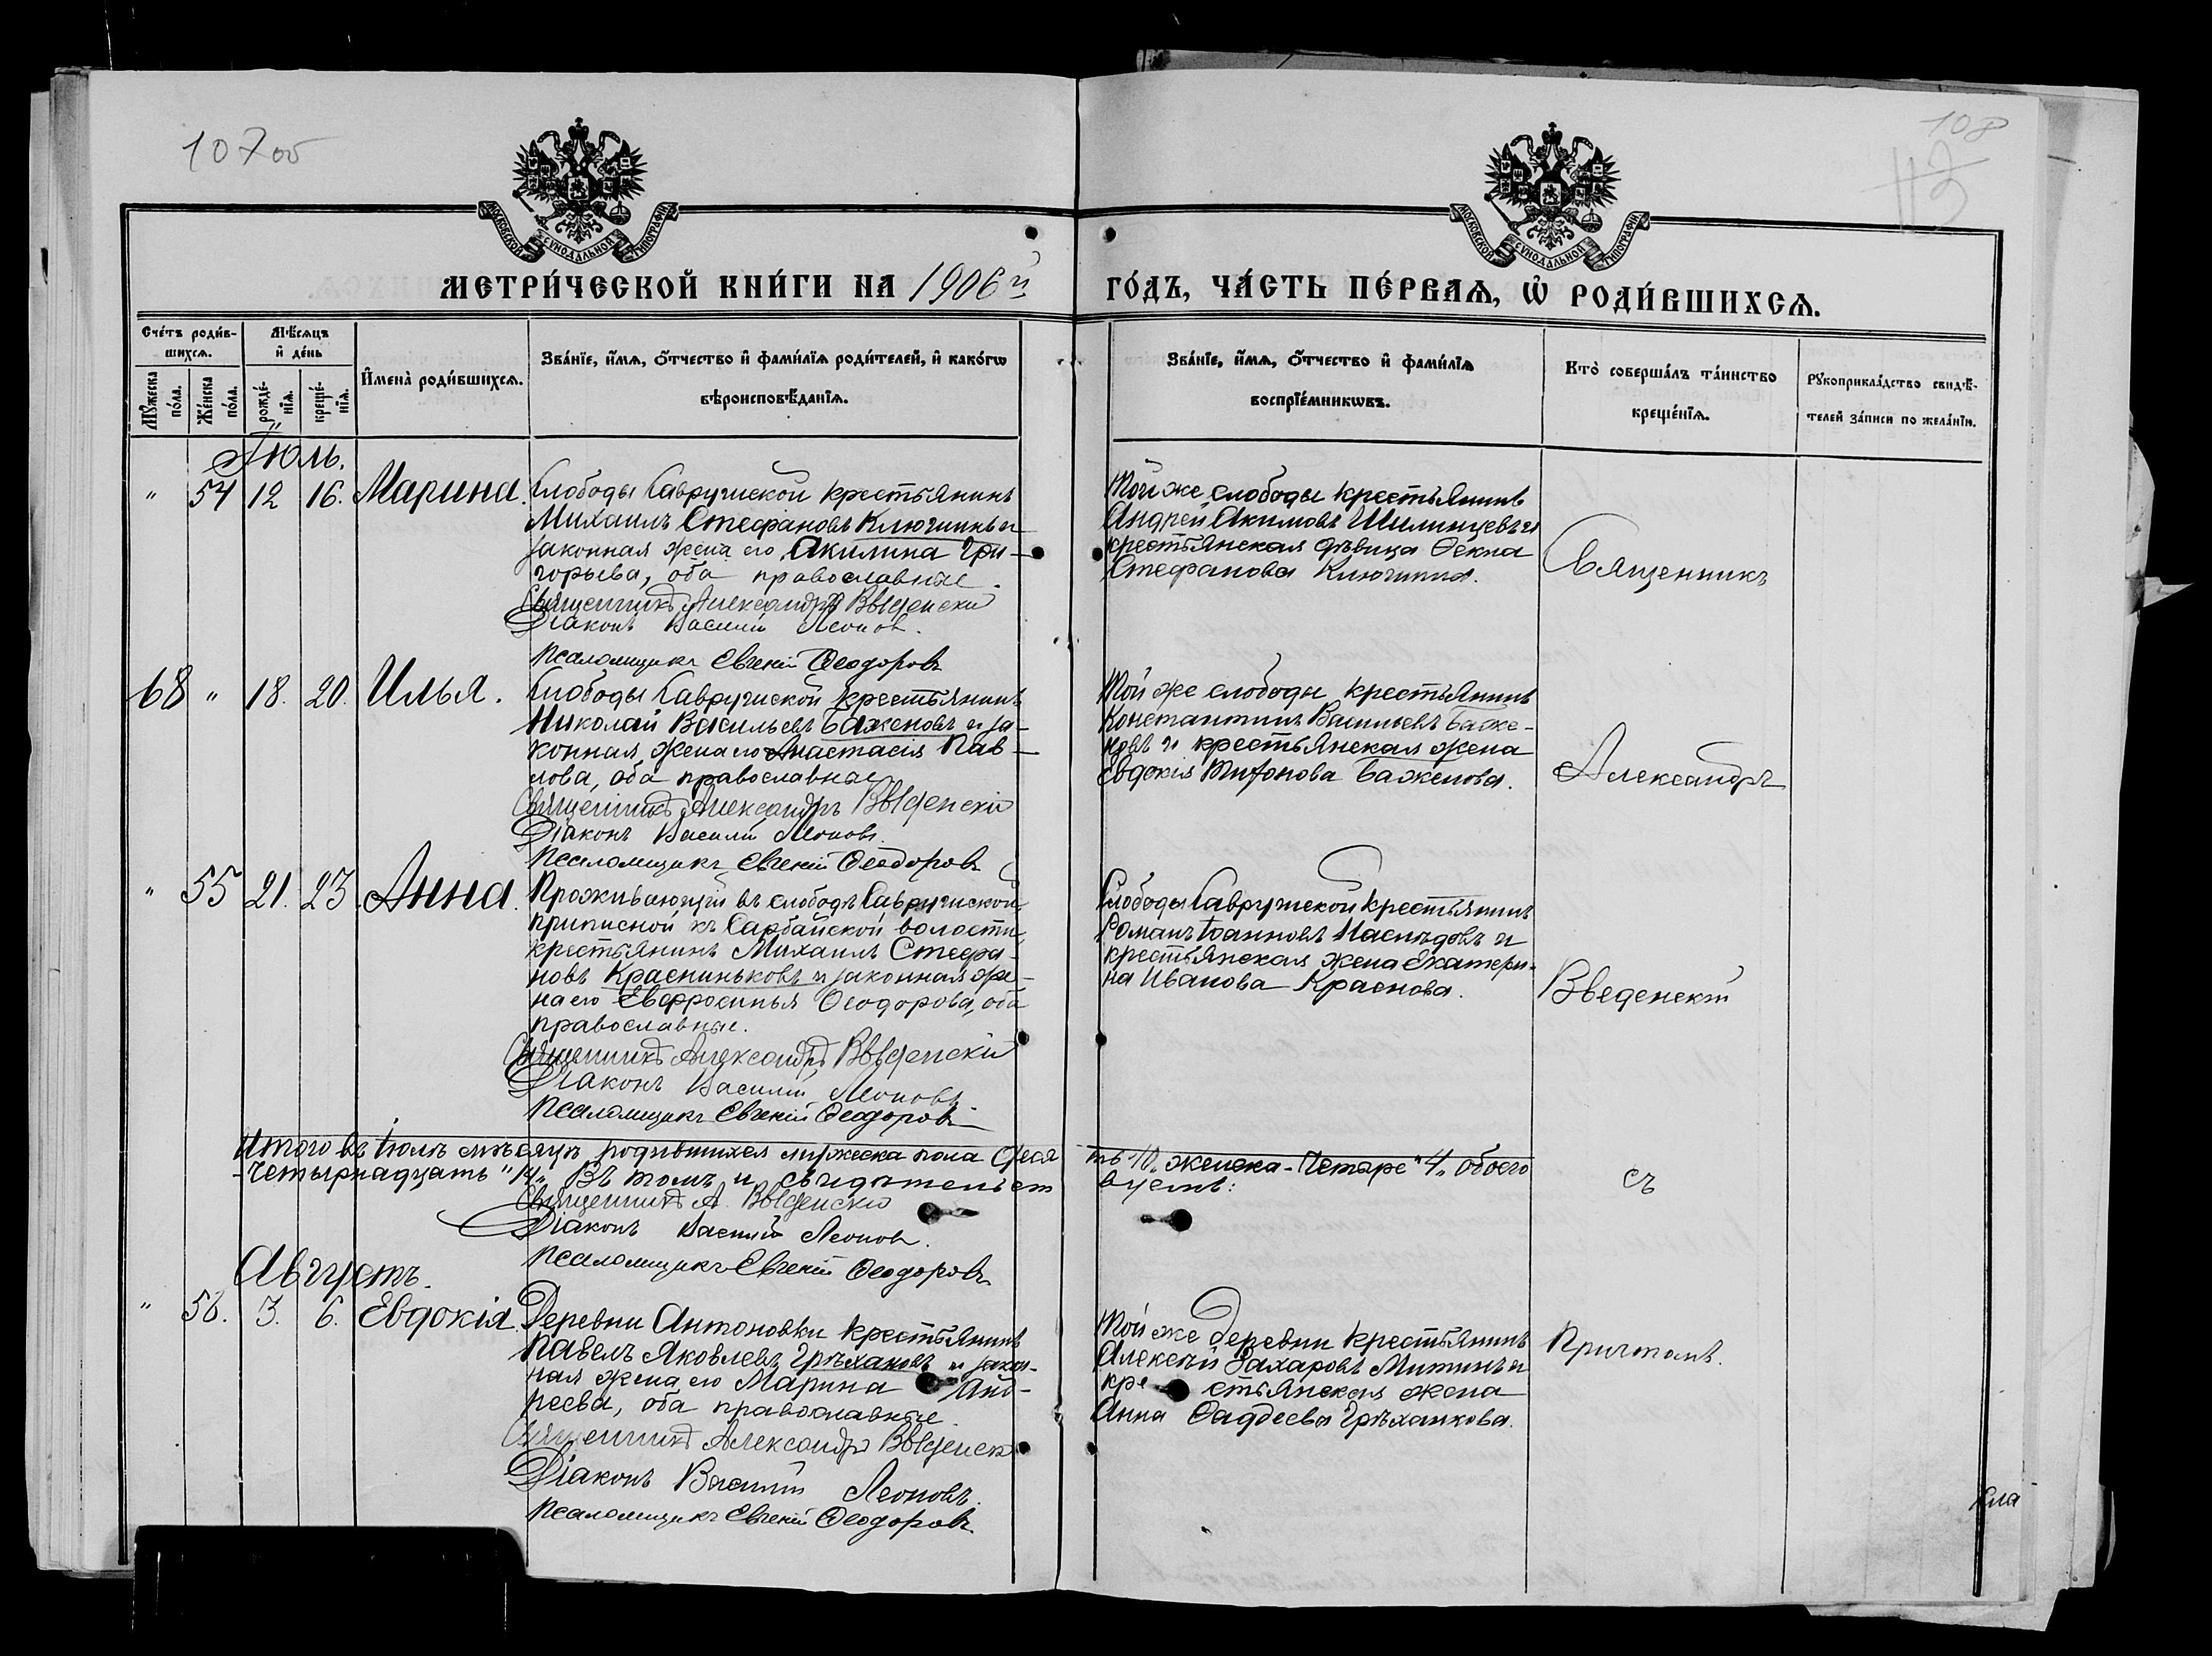 107об
108
113
МОСКОВСКОЙ СѴНОДАЛЬНОЙ ТИПОГРАФІИ
МОСКОВСКОЙ СѴНОДАЛЬНОЙ ТИПОГРАФІИ
МЕТРИ́ЧЕСКОЙ КНИ́ГИ НА 1906й
ГО́ДЪ, ЧА́СТЬ ПЕ́РВАѦ, Ѡ҆ РОДИ́ВШИХСѦ.
Сче́тъ роди́в-
шихсѧ.
Мѣ́сѧцъ
и҆ де́нь
Мꙋ́жеска
по́ла.
Же́нска
по́ла.
рожде́-
нїѧ.
креще́-
нїѧ.
И҆мена̀ роди́вшихсѧ.
Зва́нїе, и҆́мѧ, ѻ҆́тчество и҆ фами́лїѧ роди́телей, и҆ како́гѡ
вѣроисповѣ́данїѧ.
Зва́нїе, и҆́мѧ, ѻ҆́тчество и҆ фами́лїѧ
воспрїе́мникѡвъ.
Кто̀ соверша́лъ та́инство
креще́нїѧ.
Рꙋкоприкла́дство свидѣ́-
телей за́писи по жела́нїю.
Іюль.
" 54 12 16. Марина.
Слободы Саврушской крестьянинъ
Михаилъ Стефановъ Ключинъ и
законная жена его Акилина Гри-
горьева, оба православные.
Священникъ Александръ Введенскій
Діаконъ Василій Леонов.
Псаломщикъ Евгеній Ѳеодоровъ
Той же слободы крестьянинъ
Андрей Акимовъ и
крестьянская дѣвица Ѳекла
Стефанова Ключина.
Священникъ
68 " 18. 20. Илья.
Слободы Саврушской крестьянинъ
Николай Васильевъ Баженовъ и за-
конная жена его Анастасія Пав-
лова, оба православные
Священникъ Александръ Введенскій
Діаконъ Василій Леоновъ.
Псаломщикъ Евгеній Ѳеодоровъ
Той же слободы крестьянинъ
Константинъ Васильевъ Баже-
новъ и крестьянская жена
Евдокія Баженова.
Александръ
" 55 21. 23. Анна.
Проживающій въ слободѣ Саврушской,
приписной къ Сарбайской волости
крестьянинъ Михаилъ Стефа-
новъ Красниньковъ и законная же-
на его Евфросинья Ѳеодорова, оба
православные.
Священникъ Александръ Введенскій
Діаконъ Василій Леоновъ
Псаломщикъ Евгеній Ѳеодоровъ
Слободы Саврушской крестьянинъ
Романъ Іоанновъ Наслѣдовъ и
крестьянская жена Екатери-
на Иванова Краснова.
Введенскій
Итого въ Іюлѣ мѣсяцѣ родившихся мужеска пола деся
ть "10" женска - Четыре "4" обоего
- Четырнадцать "14" Въ томъ и свидѣтельст
вуемъ:
Священникъ А. Введенскій
Діаконъ Василій Леонов.
Псаломщикъ Евгеній Ѳеодоровъ
съ
Августъ.
" 56. 3. 6. Евдокія.
Деревни Антоновки крестьянинъ
Павелъ Яковлевъ Грѣханковъ и закон-
ная жена его Марина Анд-
реева, оба православные.
Священникъ Александръ Введенск
Діаконъ Василій Леоновъ.
Псаломщикъ Евгеній Ѳеодоровъ
Той же деревни крестьянинъ
Алексѣй Захаровъ Митинъ и
крестьянская жена
Анна Ѳаддеева Грѣханкова.
Причтомъ.